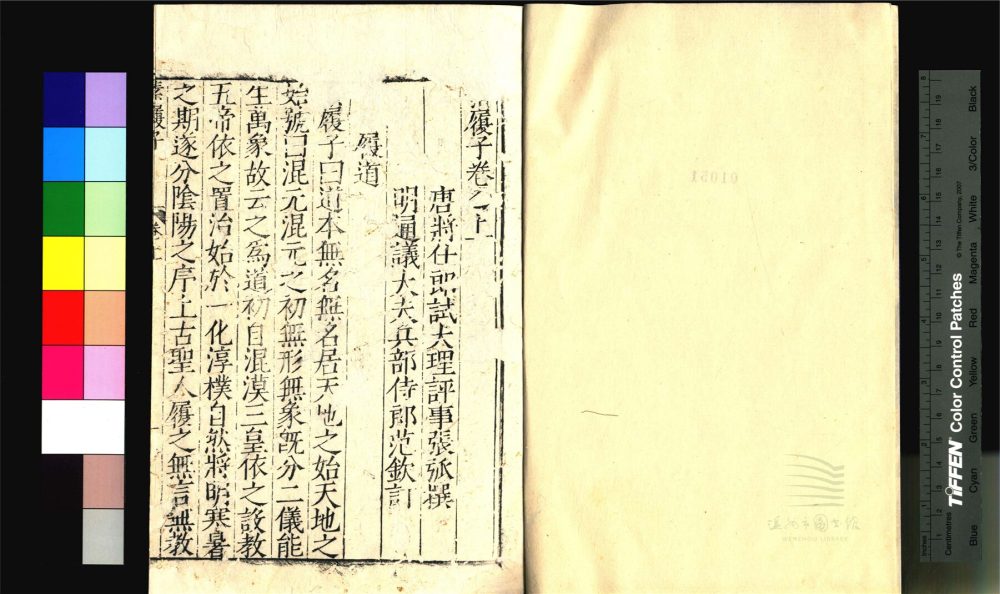 履子卷上
唐將仕郎試大理評事張弧撰
明通議大夫兵部侍郎范欽訂
履道
履子曰道本無名無名居天地之始天地之
始號曰混元混元之初無形無象旣分二儀能
生萬象故云之爲道初自混漠三皇依之設教
五帝依之置治始於一化淳樸自然將明寒暑
之期逐分陰陽之序上古聖人履之無言無教
素履子
卷上
01051
温州市圖書館
WENZHOU LIBRARY
TIFFEN Color Control Patches
© The Tiffen Company, 2007
Inches
Centimetres
Blue
Cyan
Green
Yellow
Red
Magenta
White
3/Color
Black